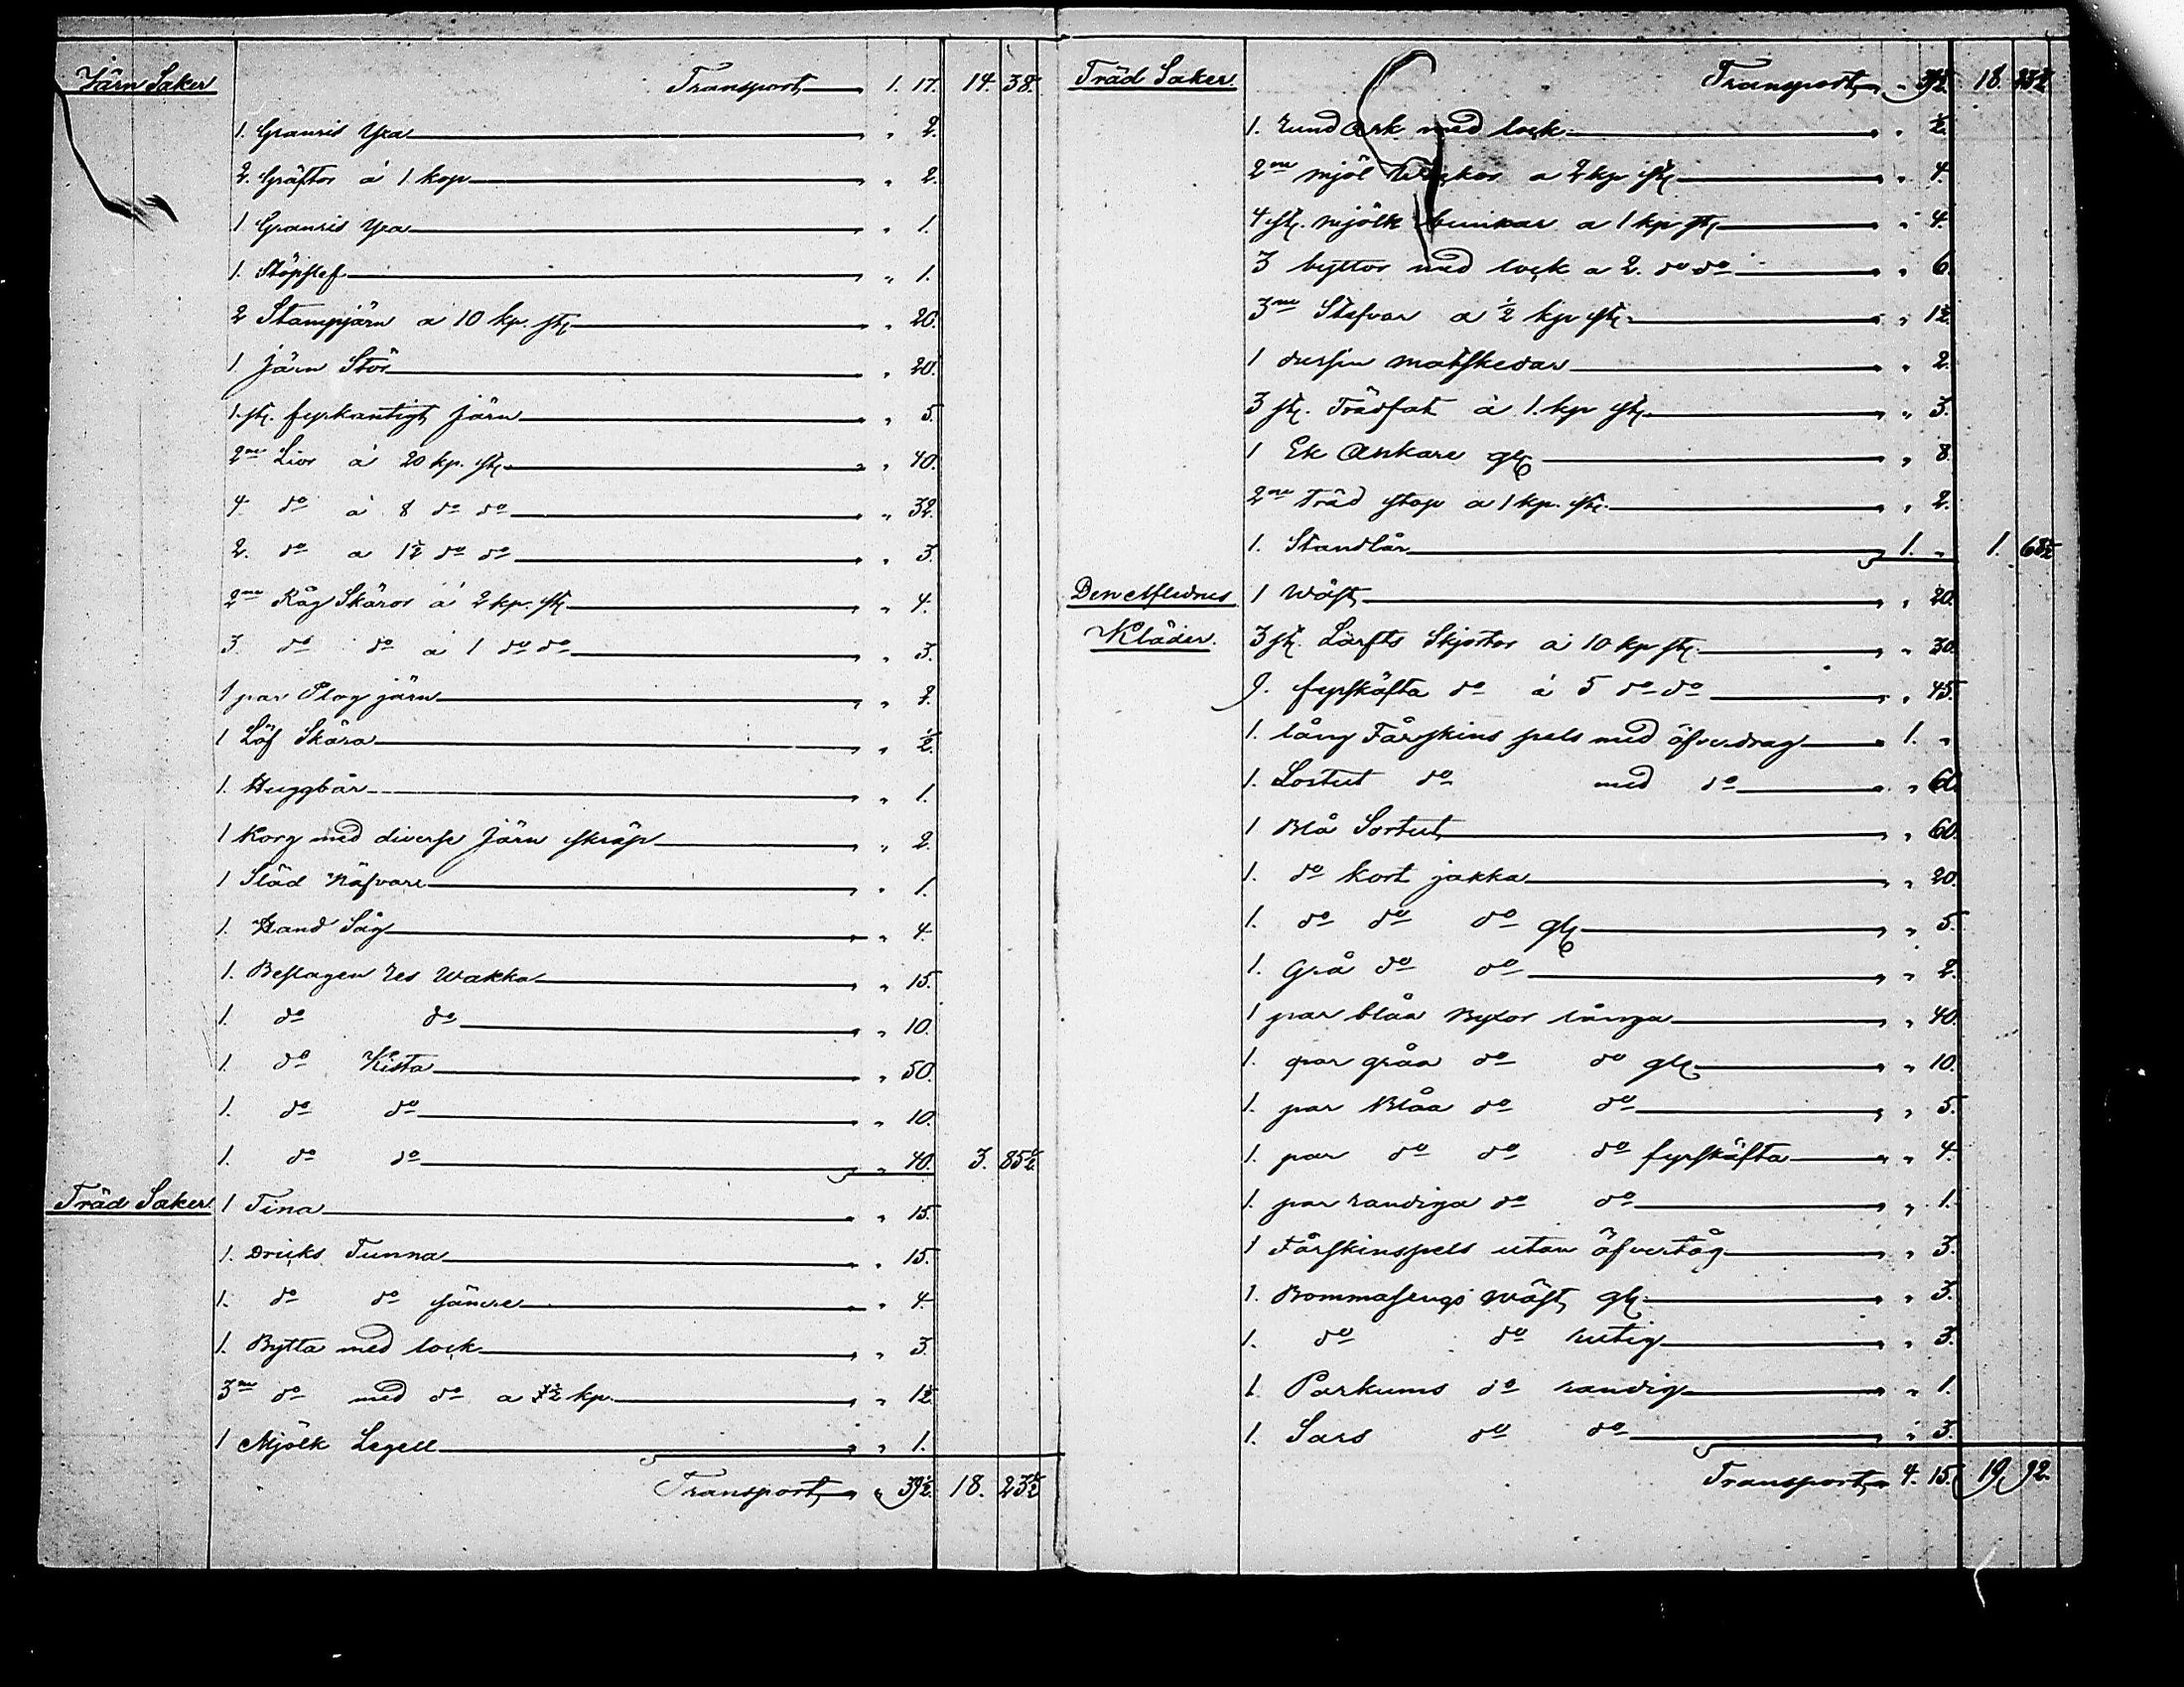 Järn Saker Transport 1. 17. 14. 38.
1. Granris Yxa " 2.
2. Gräftor á 1. kop " 2.
1 Granris Yxa " 1.
1. Stöpslef " 1.
2 Stampjärn a 10 kp. st " 20.
1 Järn Stör " 20.
1. st. fyrkantigt Järn " 5.
2ne Lior á 20 kp. st. " 40.
4 do á 8 do do " 32.
2. do a 1½ do do " 3.
2ne Råg Skäror á 2 kp. st " 4.
3. do do á 1 do do " 3.
1 par Plog järn " 2.
1 Löf Skära " ½.
1. Huggbår " 1.
1 Korg med diverse Järn skräp " 2.
1 Släd Näfvare " 1.
1. Hand Såg " 4.
1. Beslagen Res Wakka " 15.
1. do do " 10.
1. do Kista " 50.
1. do do " 10.
1. do do " 40. 3. 85½
Träd Saker. 1 Tina " 15.
1. Dricks Tunna " 15.
1. do do sämre " 4.
1. Bytta med lock " 3.
3ne do med do a ½ kp. " 1½
1 Mjölk Legell " 1.
Transport " 39½. 18. 23½
Träd Saker. Transport " 39½. 18. 23½
1. rund Ask med lock " ½.
2ne mjöl a 2 kp st " 4.
4 st. mjölk bunkar a 1 kp st " 4.
3 byttor med lock a 2. do do " 6.
3ne Stäfvor a ½ kp st. " 1½.
1 dussin matskedar " 2.
3 st. Trädfat á 1. kp st. " 3.
1 Ek Ankare gl " 8.
2ne Träd stop a 1 kp. st. " 2.
1. Standlår 1. " 1. 68½
Den Aflidnes 1 Wäst " 20.
Kläder. 3 st. Lärfts Skjortor á 10 kp st. " 30.
9. fyrskäfta do á 5 do do " 45.
1. lång Fårskins pels med öfverdrag 1. "
1. Sortut do med do " 60.
1 Blå Sortut " 60.
1. do kort jakka " 20.
1. do do do gl " 5.
1. Grå do do " 2.
1 par blåa Byxor långa " 40.
1. par gråa do do gl " 10.
1. par Blåa do do " 5.
1. par do do do fyrskäfta " 4.
1. par randiga do do " 1.
1 Fårskinspels utan öfvertåg " 3.
1. Bommasengs Wäst gl. " 3.
1. do do rutig " 3.
1. Parkums do randig " 1.
1. Sars do do " 3.
Transport 4. 15. 19. 92.